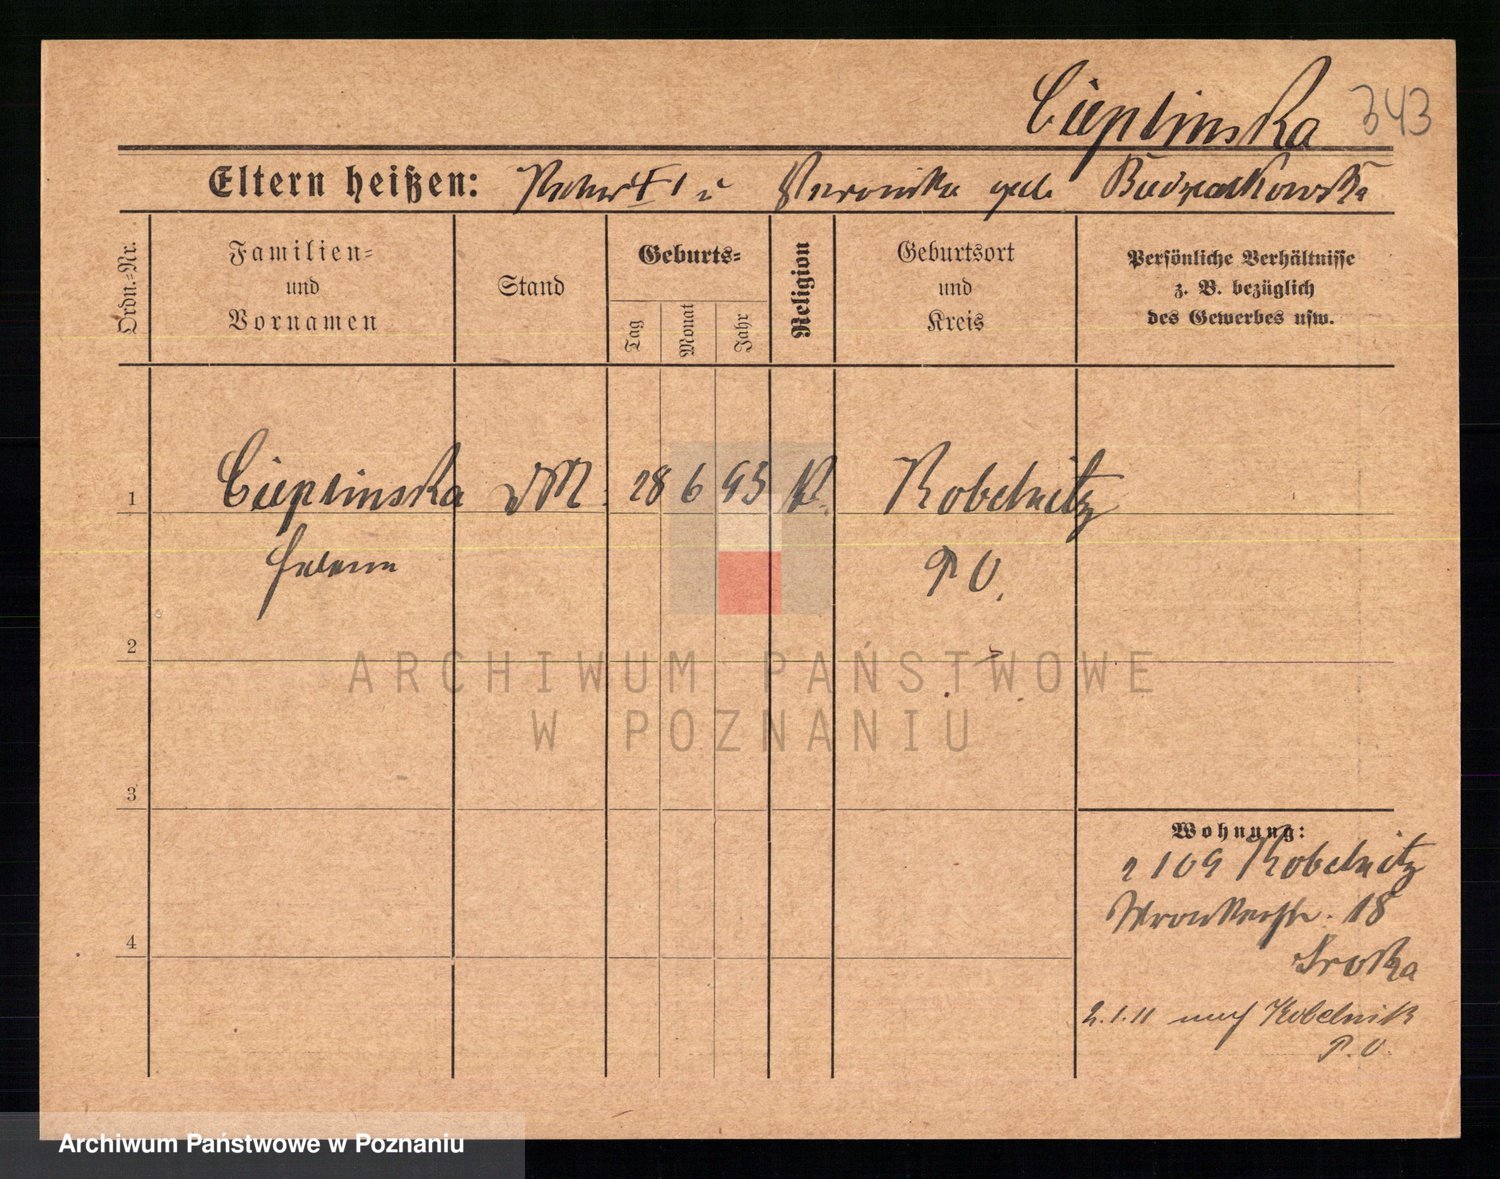 Cieplinska 343
Eltern heißen: u Veronika geb. Budzialkowska
Ordn.=Nr.
Familien=
und
Vornamen
Stand
Geburts=
Tag
Monat
Jahr
Religion
Geburtsort
und
Kreis
Persönliche Verhältnisse
z. B. bezüglich
des Gewerbes usw.
1 Cieplinska DM. 28 6 93 K. Kobelnitz
Helene P O.
2
ARCHIWUM PAŃSTWOWE
W POZNANIU
3
Wohnung:
2 10 9 Kobelnitz
Wronkerstr. 18
Sroka
2.1.11 nach Kobelnik
P. O.
4
Archiwum Państwowe w Poznaniu